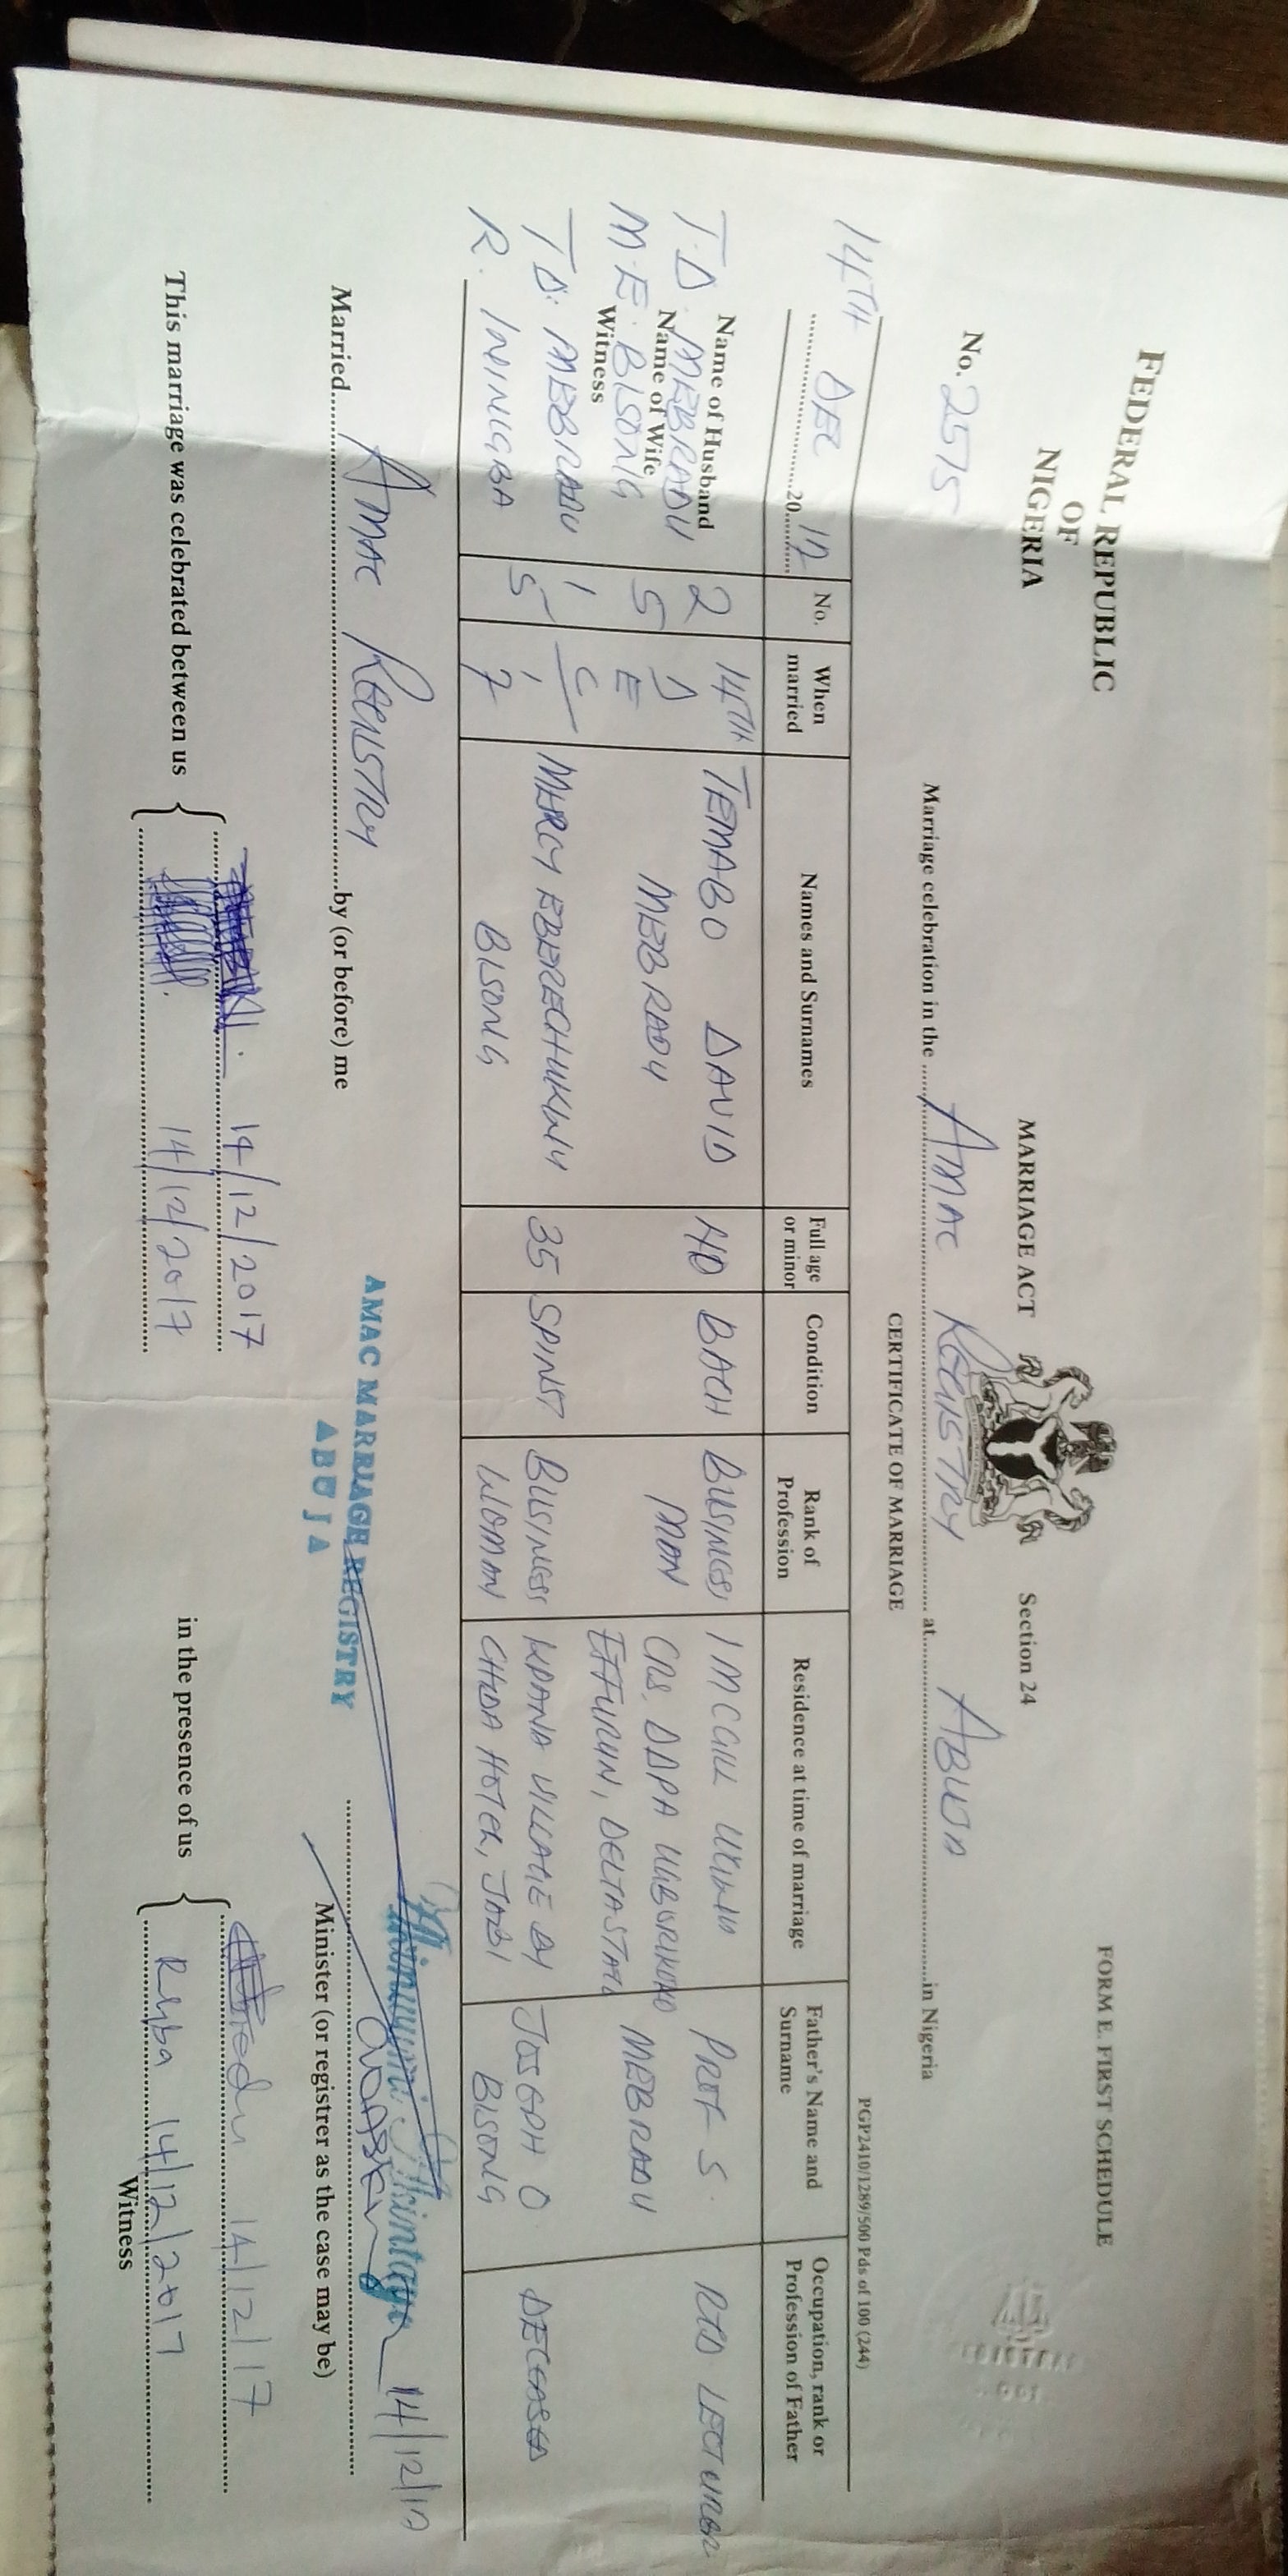 FEDERAL REPUBLIC
OF
NIGERIA
No. 2575
14TH DEC 20 17
Name of Husband
T.D. MEBRADU
Name of Wife
M.E. BISONG
Witness
T.D. MEBRADU
R. ININGBA
MARRIAGE ACT Section 24
FORM E. FIRST SCHEDULE
Marriage celebration in the AMAC REGISTRY at ABUJA in Nigeria
CERTIFICATE OF MARRIAGE
PGP2410/1289/500 Pds of 100 (244)
No. When married Names and Surnames Full age or minor Condition Rank of Profession Residence at time of marriage Father's Name and Surname Occupation, rank or Profession of Father
2 14TH TEMABO DAVID 40 BACH BUSINESS 1 MCGILL PROF S. RTD LECTURER
5 D E MEBRADU MAN CRS, DDPA MEBRADU
EFFURUN, DELTA STATE
1 C MERCY EBERECHUKWU 35 SPINST BUSINESS KPANA VILLAGE BY JOSEPH O DECEASED
5 17 BISONG WOMAN CHIDA HOTEL, JABI BISONG
Married AMAC REGISTRY by (or before) me
14/12/17
AMAC MARRIAGE REGISTRY
ABUJA
Minister (or registrer as the case may be)
This marriage was celebrated between us
14/12/2017
14/12/2017
in the presence of us
14/12/17
14/12/2017
Witness